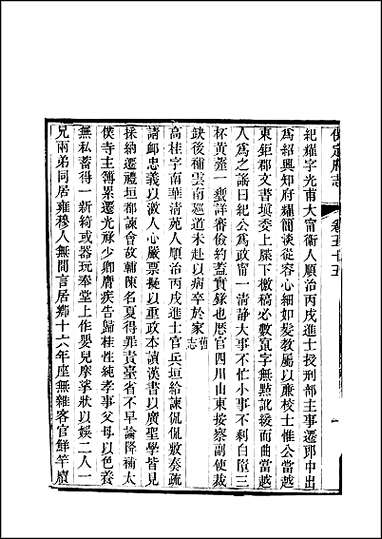 保定府志 卷五十五 一
紀耀字光甫大富衞人順治丙戌進士授刑部主事遷郎中出
為紹興知府耀簡談從容心細如髮教屬以廉校士惟公當越
東鉅郡文書填委上牒下檄稿必數寫字無點訛緩而曲當越
人為之謠曰紀公為政甯一清靜大事不忙小事不剩白簡三
杯黃虀一甕詳審儉約葢實錄也歷官四川山東按察副使裁
缺後補雲南巡道未赴以病卒於家舊志
高桂字南華清苑人順治丙戌進士官兵垣給諫侃侃數奏疏
請卹忠義以激人心嚴票擬以重政本讀漢書以廣聖學皆見
採納遷禮垣都諫會故輔陳名夏得罪責臺省不早論降補太
僕寺主簿累遷光祿少卿膺疾告歸桂性純孝事父母以色養
無私蓄得一新綺或器玩奉堂上作嬰兒摩挲狀以娛二人一
兄兩弟同居雍穆人無閒言居鄉十六年座無雜客官鮮竿牘